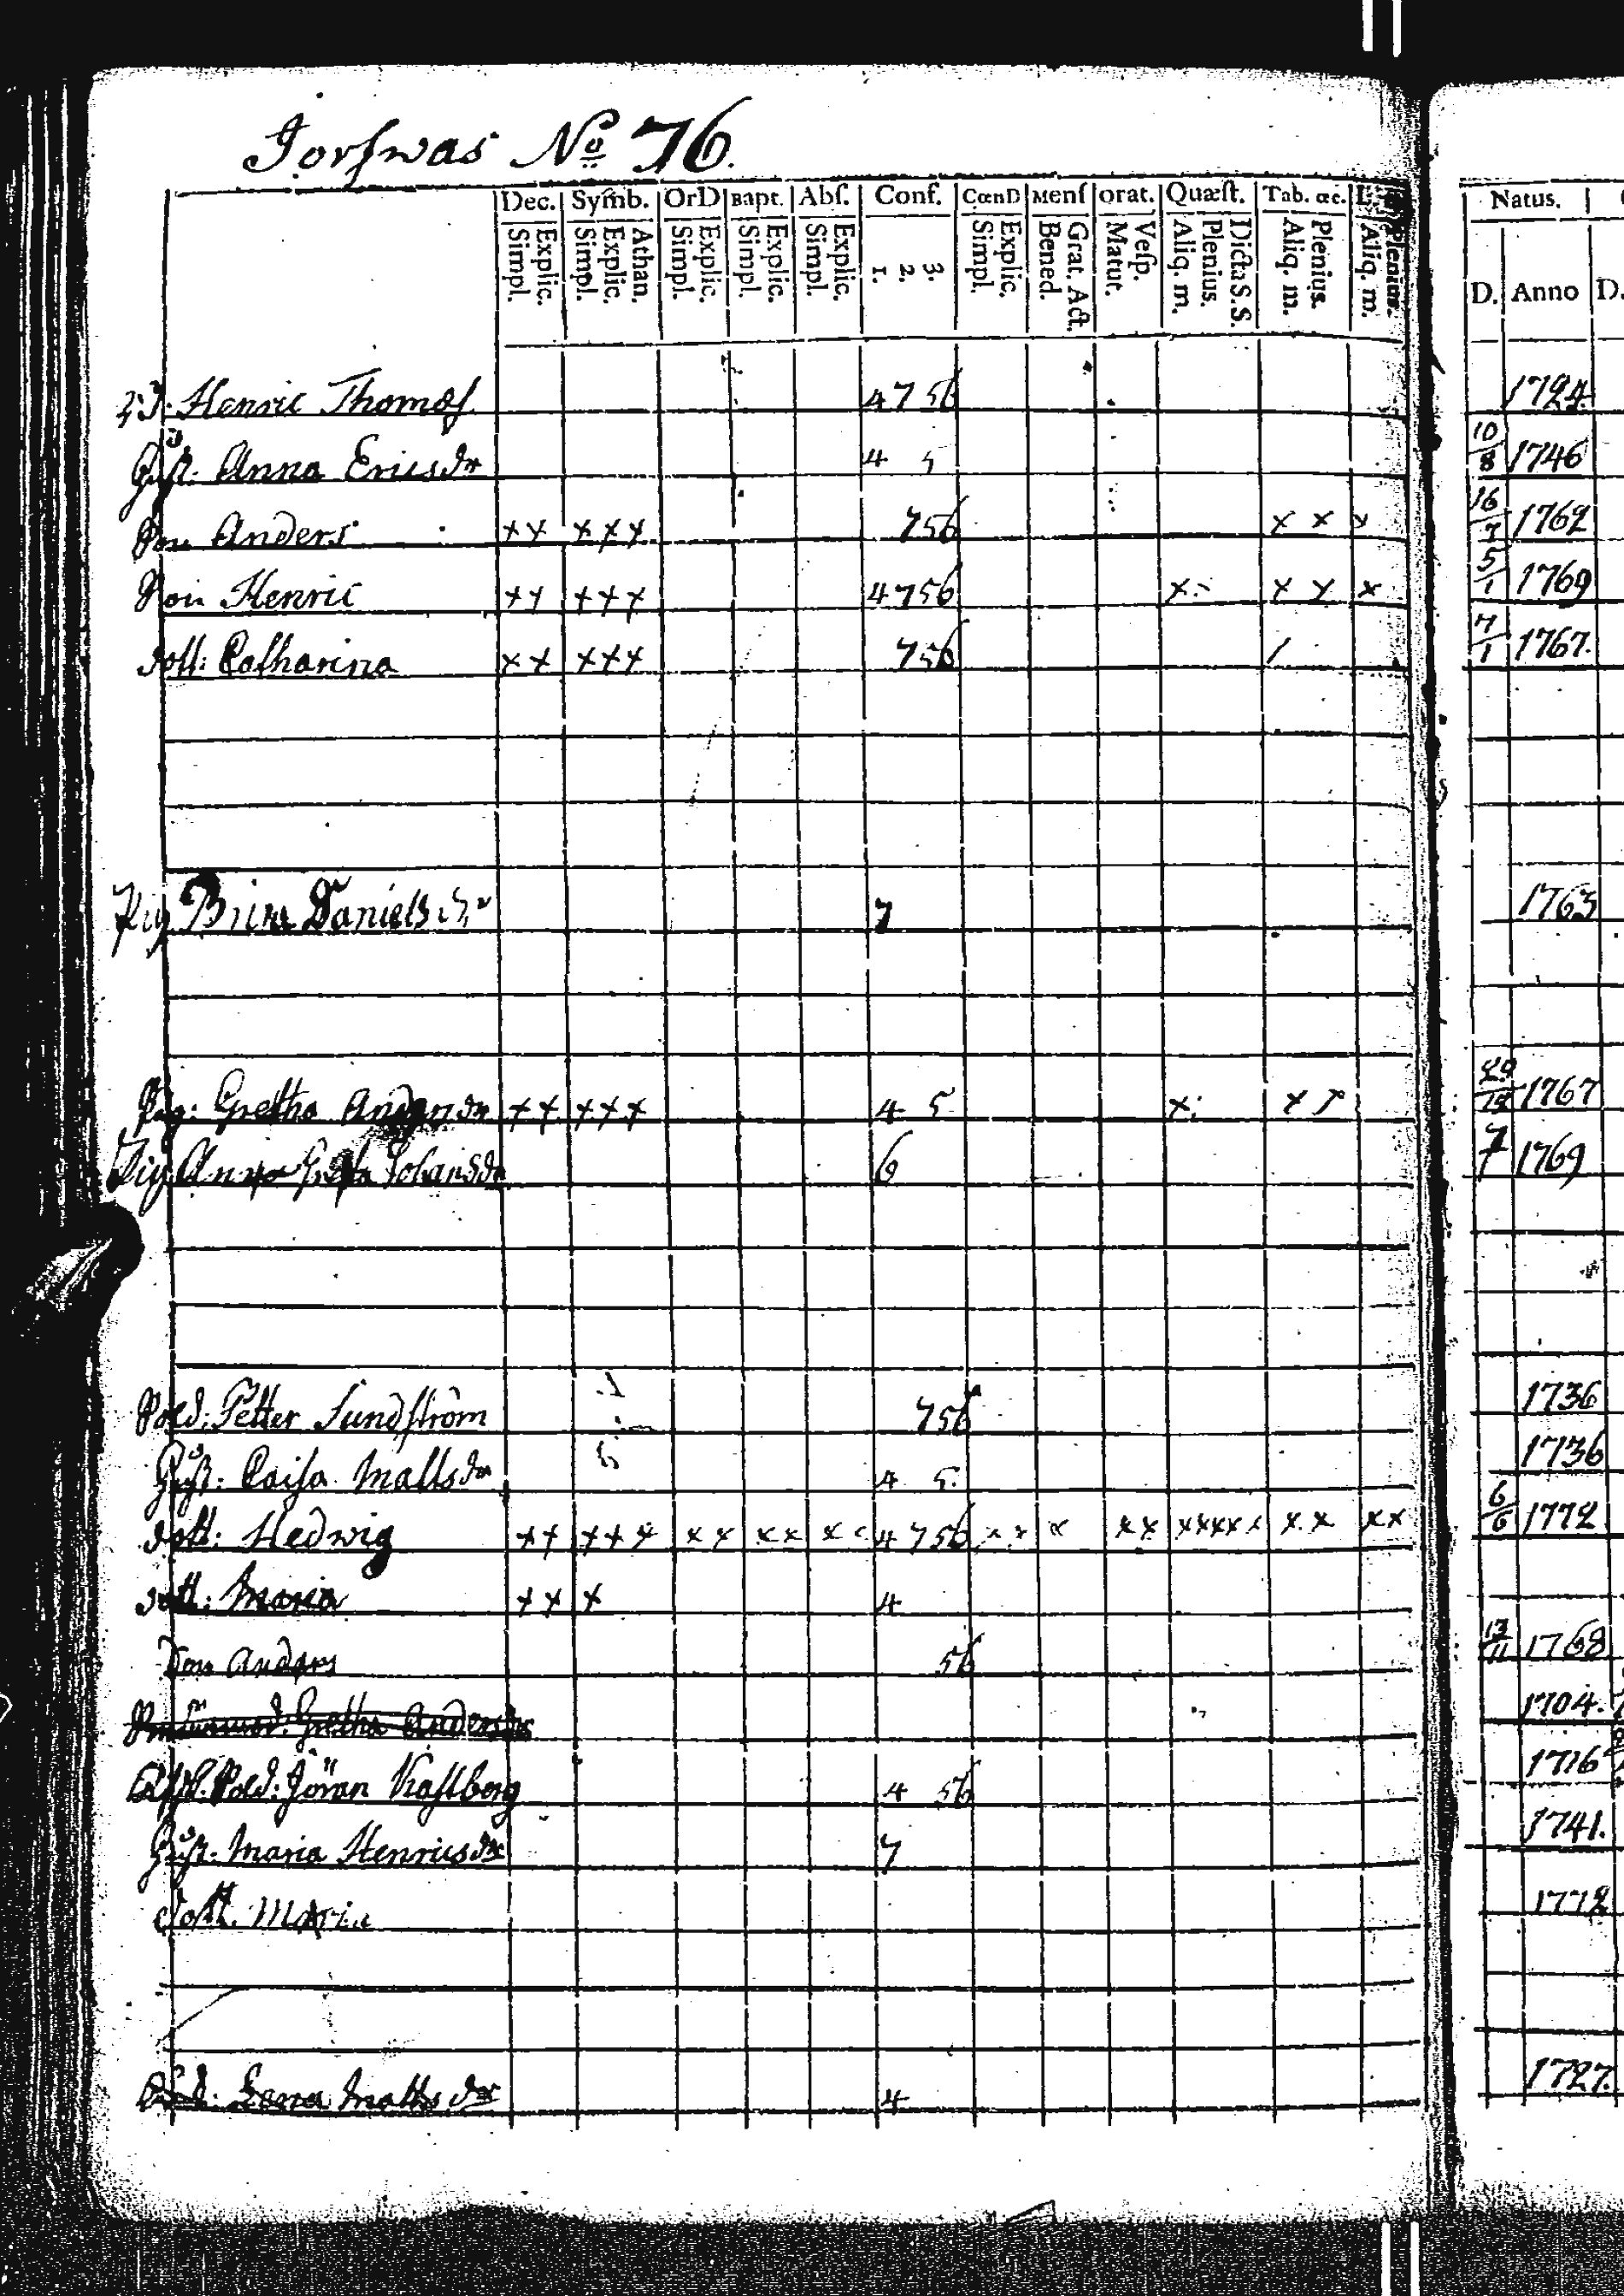 Torswas No 76.
Dec. Symb. OrD Bapt. Abſ. Conf. CœnD Menſ Orat. Quæſt. Tab. œc. Natus.
Simpl. Explic. Simpl. Explic. Athan. Simpl. Explic. Simpl. Explic. Simpl. Explic. 1. 2. 3. Simpl. Explic. Bened. Grat. Act. Matut. Veſp. Aliq. m. Plenius. Dicta S.S. Aliq. m. Plenius. Aliq. m. Plenius. D. Anno D.
Henric Thomas 4 7 5 6 1724.
Hust. Anna Ericsdr 4 5 10/8 1746
Son Anders x x x x x 7 5 6 x x x 16/7 1762
Son Henric x x x x x 4 7 5 6 x x x x 5/1 1769
dott: Catharina x x x x x 7 5 6 / 7/1 1767.
Pig Brita Daniels dr 7 1763
Pig: Gretha Andersdr x x x x x 4 5 x x 1767
Pig Anna Greta Johansdr 6 1769
Sold: Petter Sundström 7 5 6 1736
Hust: Caisa Mattsdr 4 5. 1736
dott: Hedwig x x x x x x x x x x 4 7 5 6 x x x x x x x x x x x x x x 6/6 1772
dott: Maria x x x 4
Son Anders 5 6 13/11 1768
Gretha Andersdr 1704.
Sold: Jöran Kastberg 4 5 6 1716
Hust: Maria Henricsdr 7 1741.
dott. Maria 1772
Lena Mattsdr 4 1727.